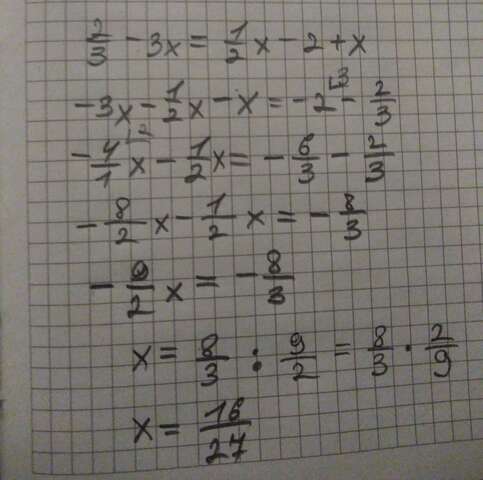 2/3 - 3x = 1/2 x - 2 + x
-3x - 1/2 x - x = -2⌈3 - 2/3
-4/1⌈2 x - 1/2 x = - 6/3 - 2/3
-8/2 x - 1/2 x = - 8/3
- 9/2 x = - 8/3
x = 8/3 : 9/2 = 8/3 · 2/9
x = 16/27